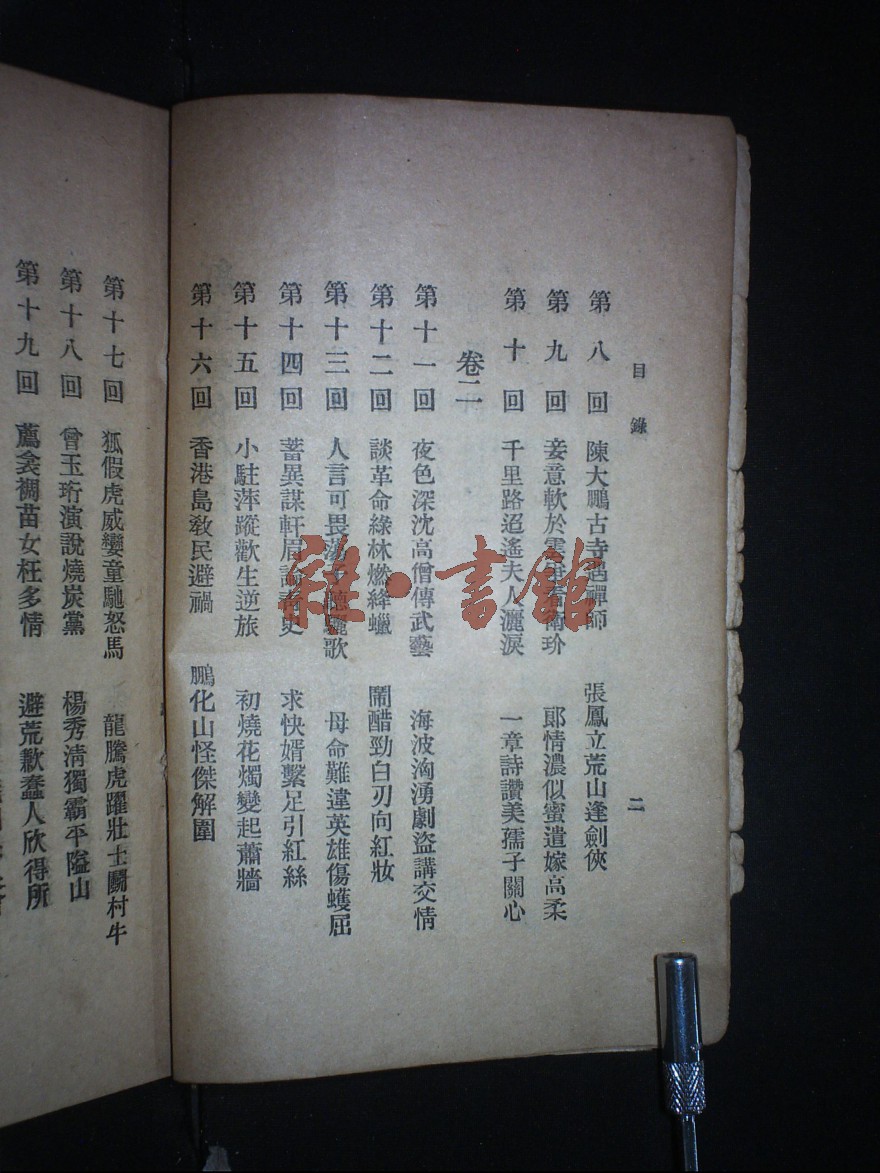 目錄
第八回 陳大鵬古寺遇禪師 張鳳立荒山逢劍俠
第九回 妾意軟於雲 玠 郞情濃似蜜遣嫁高柔
第十回 千里路迢遙夫人灑淚 一章詩讚美孺子關心
卷二
第十一回 夜色深沈高僧傳武藝 海波洶湧劇盜講交情
第十二回 談革命綠林燃絳蠟 鬧醋勁白刃向紅妝
第十三回 人言可畏蕩子聽驪歌 母命難違英雄傷蠖屈
第十四回 蓄異謀軒眉談靑史 求快婿繫足引紅絲
第十五回 小駐萍蹤歡生逆旅 初燒花燭變起蕭牆
第十六回 香港島敎民避禍 鵬化山怪傑解圍
二
第十七回 狐假虎威孌童馳怒馬 龍騰虎躍壯士鬬村牛
第十八回 曾玉珩演說燒炭黨 楊秀淸獨霸平隘山
第十九回 薦衾裯苗女枉多情 避荒歉蠢人欣得所
雜·書館